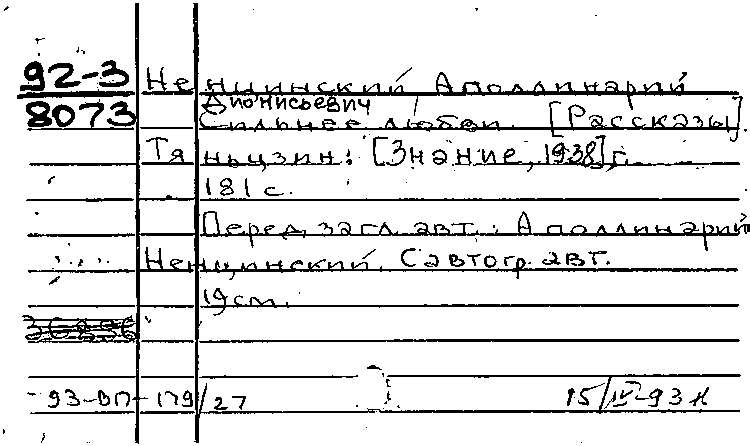 92-3 Ненцинский Аполлинарий
Дионисьевич
8073 Сильнее любви. [Рассказы].
Тяньцзин: [Знание, 1938], г.
181 с.
Перед загл. авт.: Аполлинарий
Ненцинский. С автогр. авт.
19 см.
36836
93-ВП-179/27 15/IV-93 н